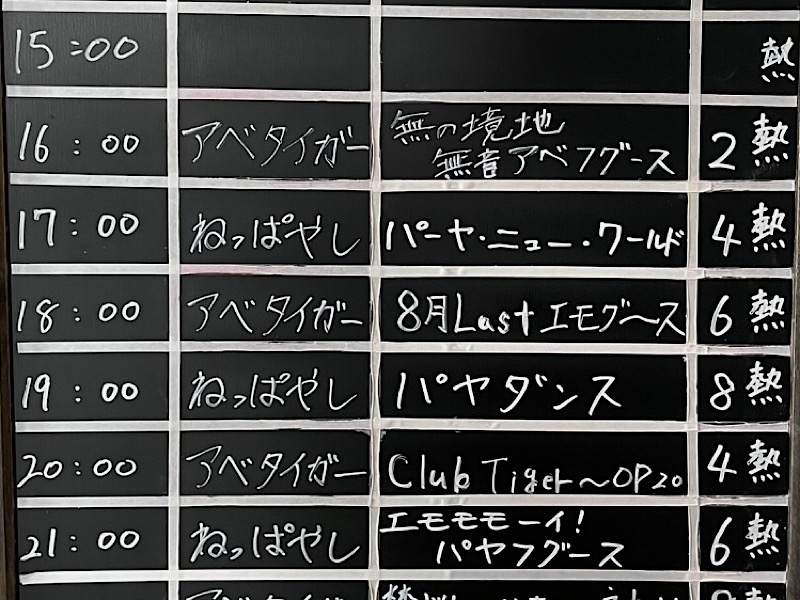 15:00 熱
16:00 アベタイガー 無の境地 2熱
無音アベフグース
17:00 ねっぱやし パーヤ・ニュー・ワールド 4熱
18:00 アベタイガー 8月Lastエモグ〜ス 6熱
19:00 ねっぱやし パヤダンス 8熱
20:00 アベタイガー Club Tiger〜OP20 4熱
21:00 ねっぱやし エモモモーイ! 6熱
パヤフグース
アベタイガー